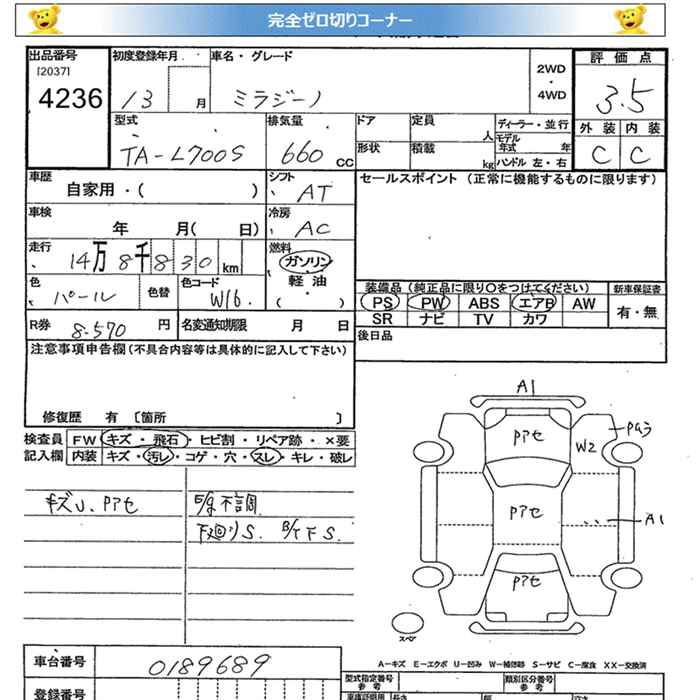 完全ゼロ切りコーナー
出品番号 初度登録年月 車名・グレード 2WD・4WD 評価点
[2037]
4236 13 月 ミラジーノ 3.5
型式 排気量 ドア 定員 人 ディーラー・並行 外装 内装
モデル年式 年
TA-L700S 660 CC 形状 積載 kg ハンドル 左・右 C C
車歴 自家用・( ) シフト AT セールスポイント (正常に機能するものに限ります)
車検 年 月( 日) 冷房 AC
走行 14万8千830km 燃料 ガソリン
軽油
( )
色 パール 色替 色コード W16. 装備品 (純正品に限り○をつけてください) 新車保証書
PS PW ABS エアB AW 有・無
R券 8.570 円 名変通知期限 月 日 SR ナビ TV カワ
後日品
注意事項申告欄(不具合内容等は具体的に記入して下さい)
修復歴 有 〔箇所 〕
検査員 FW キズ・飛石・ヒビ割・リペア跡・×要
記入欄 内装 キズ・汚レ・コゲ・穴・スレ・キレ・破レ
キズU、Pアセ
E/g不調
下廻りS. B/T F S.
A1
Pアセ
W2
Pハラ
Pアセ
A1
Pアセ
スペア
A-キズ E-エクボ U-凹み W-補修跡 S-サビ C-腐食 XX-交換済
車台番号 0189689
型式指定番号 類別区分番号
参考 参考
登録番号 長さ 幅 高さ